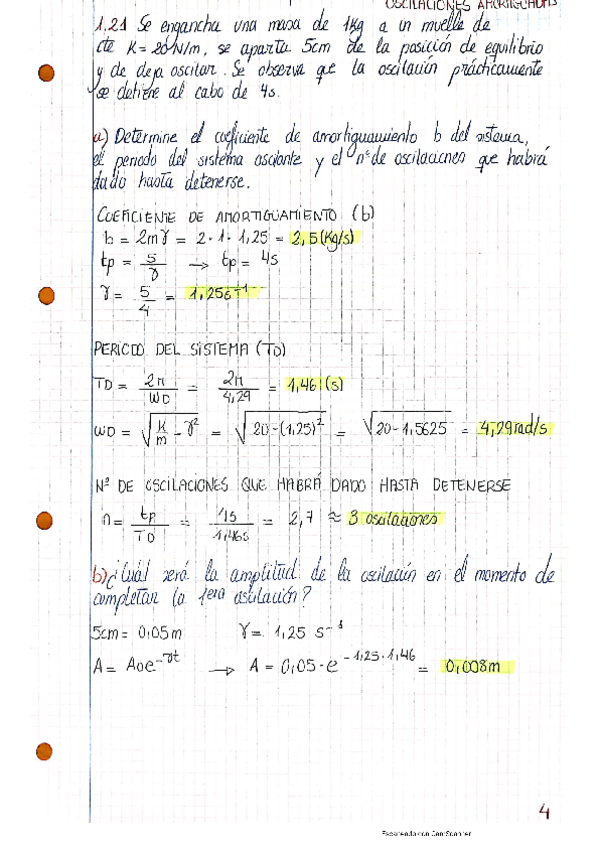 OSCILACIONES AMORTIGUADAS
1.21 Se engancha una masa de 1kg a un muelle de
cte K = 20 N/m, se aparta 5cm de la posición de equilibrio
y de deja oscilar. Se observa que la oscilación prácticamente
se detiene al cabo de 4s.
a) Determine el coeficiente de amortiguamiento b del sistema,
el periodo del sistema oscilante y el nº de oscilaciones que habrá
dado hasta detenerse.
COEFICIENTE DE AMORTIGUAMIENTO (b)
b = 2mγ = 2·1·1,25 = 2,5 (Kg/s)
tp = 5/γ → tp = 4s
γ = 5/4 = 1,25s⁻¹
PERIODO DEL SISTEMA (TD)
TD = 2π/WD = 2π/4,29 = 1,46 (s)
WD = √(K/m - γ²) = √(20-(1,25)²) = √(20-1,5625) = 4,29 rad/s
Nº DE OSCILACIONES QUE HABRÁ DADO HASTA DETENERSE
n = tp/TD = /1,46s = 2,7 ≈ 3 oscilaciones
b) ¿Cuál será la amplitud de la oscilación en el momento de
completar la 1era oscilación?
5cm = 0,05m γ = 1,25 s⁻¹
A = A₀e^-γt → A = 0,05·e^-1,25·1,46 = 0,008m
4
Escaneado con CamScanner